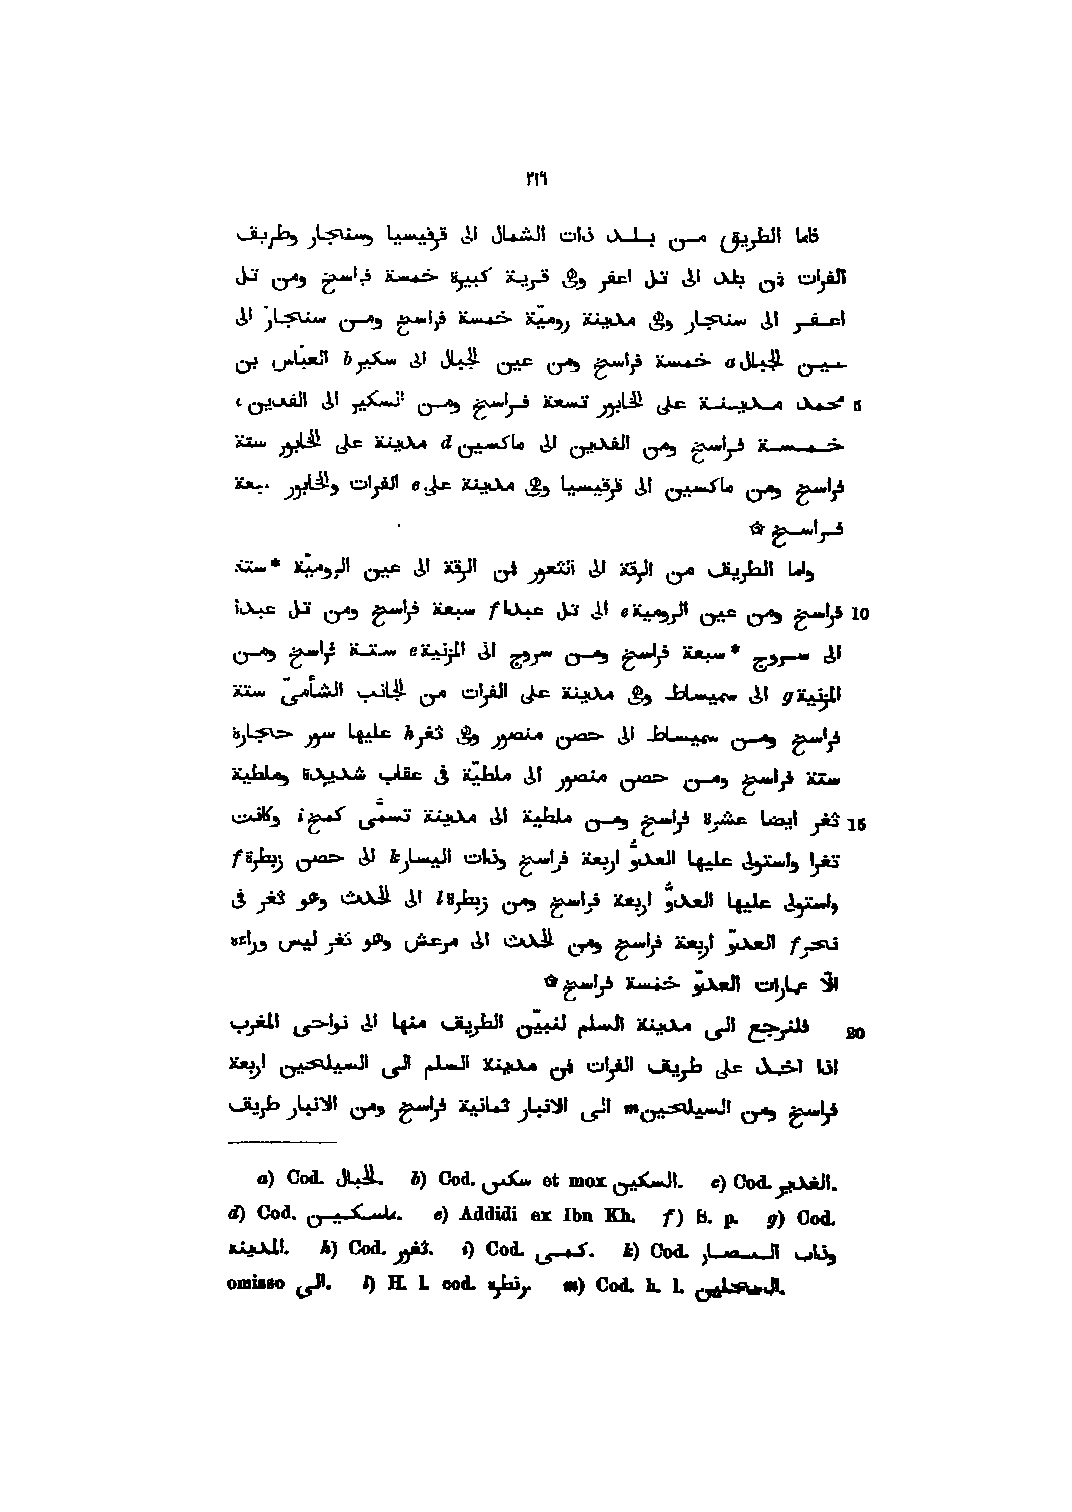 ٢١٦
فاما الطريق من بلد ذات الشمال الى قرقيسيا وسنجار وطريف
الفرات فن بلد الى تل اعفر وهى قرية كبيرة خمسة فراسخ ومن تل
اعفر الى سنجار وهى مدينة روميّة خمسة فراسخ ومن سنجار الى
عين الجبال a خمسة فراسخ ومن عين الجبال الى سكير b العبّاس بن
محمد مدينة على الخابور تسعة فراسخ ومن السكير الى الفدين c 5
خمسة فراسخ ومن الفدين الى ماكسين d مدينة على الخابور ستة
فراسخ ومن ماكسين الى قرقيسيا وهى مدينة على e الفرات والخابور سبعة
فراسخ ۞
واما الطريف من الرقة الى الثغور فن الرقة الى عين الروميّة *ستة
فراسخ ومن عين الرومية e الى تل عبدا f سبعة فراسخ ومن تل عبدا 10
الى سروج *سبعة فراسخ ومن سروج الى المزنية e ستة فراسخ ومن
المزنية g الى سميساط وهى مدينة على الفرات من الجانب الشأمىّ ستة
فراسخ ومن سميساط الى حصن منصور وهى ثغر h عليها سور حجارة
ستة فراسخ ومن حصن منصور الى ملطيّة فى عقاب شديدة وملطية
ثغر ايضا عشرة فراسخ ومن ملطية الى مدينة تسمَّى كمخ i وكانت 15
ثغرا واستولى عليها العدوُّ اربعة فراسخ وذات اليسار k الى حصن زبطرة f
واستولى عليها العدوُّ اربعة فراسخ ومن زبطرة l الى الحدث وهو ثغر فى
نحر f العدوّ اربعة فراسخ ومن الحدث الى مرعش وهو ثغر ليس وراءه
الّا عمارات العدوّ خمسة فراسخ ۞
فلنرجع الى مدينة السلم لنبيّن الطريف منها الى نواحى المغرب 20
اذا اخذ على طريف الفرات فن مدينة السلم الى السيلحين اربعة
فراسخ ومن السيلحين m الى الانبار ثمانية فراسخ ومن الانبار طريف
a) Cod. الجبال. b) Cod. سكىں et mox السكين. c) Cod. الغدير.
d) Cod. e) Addidi ex Ibn Kh. f) S. p. g) Cod.
المدينة. h) Cod. ثغور. i) Cod. كمى. k) Cod. وذاب المصار
omisso الى. l) H. l. cod. m) Cod. h. l.